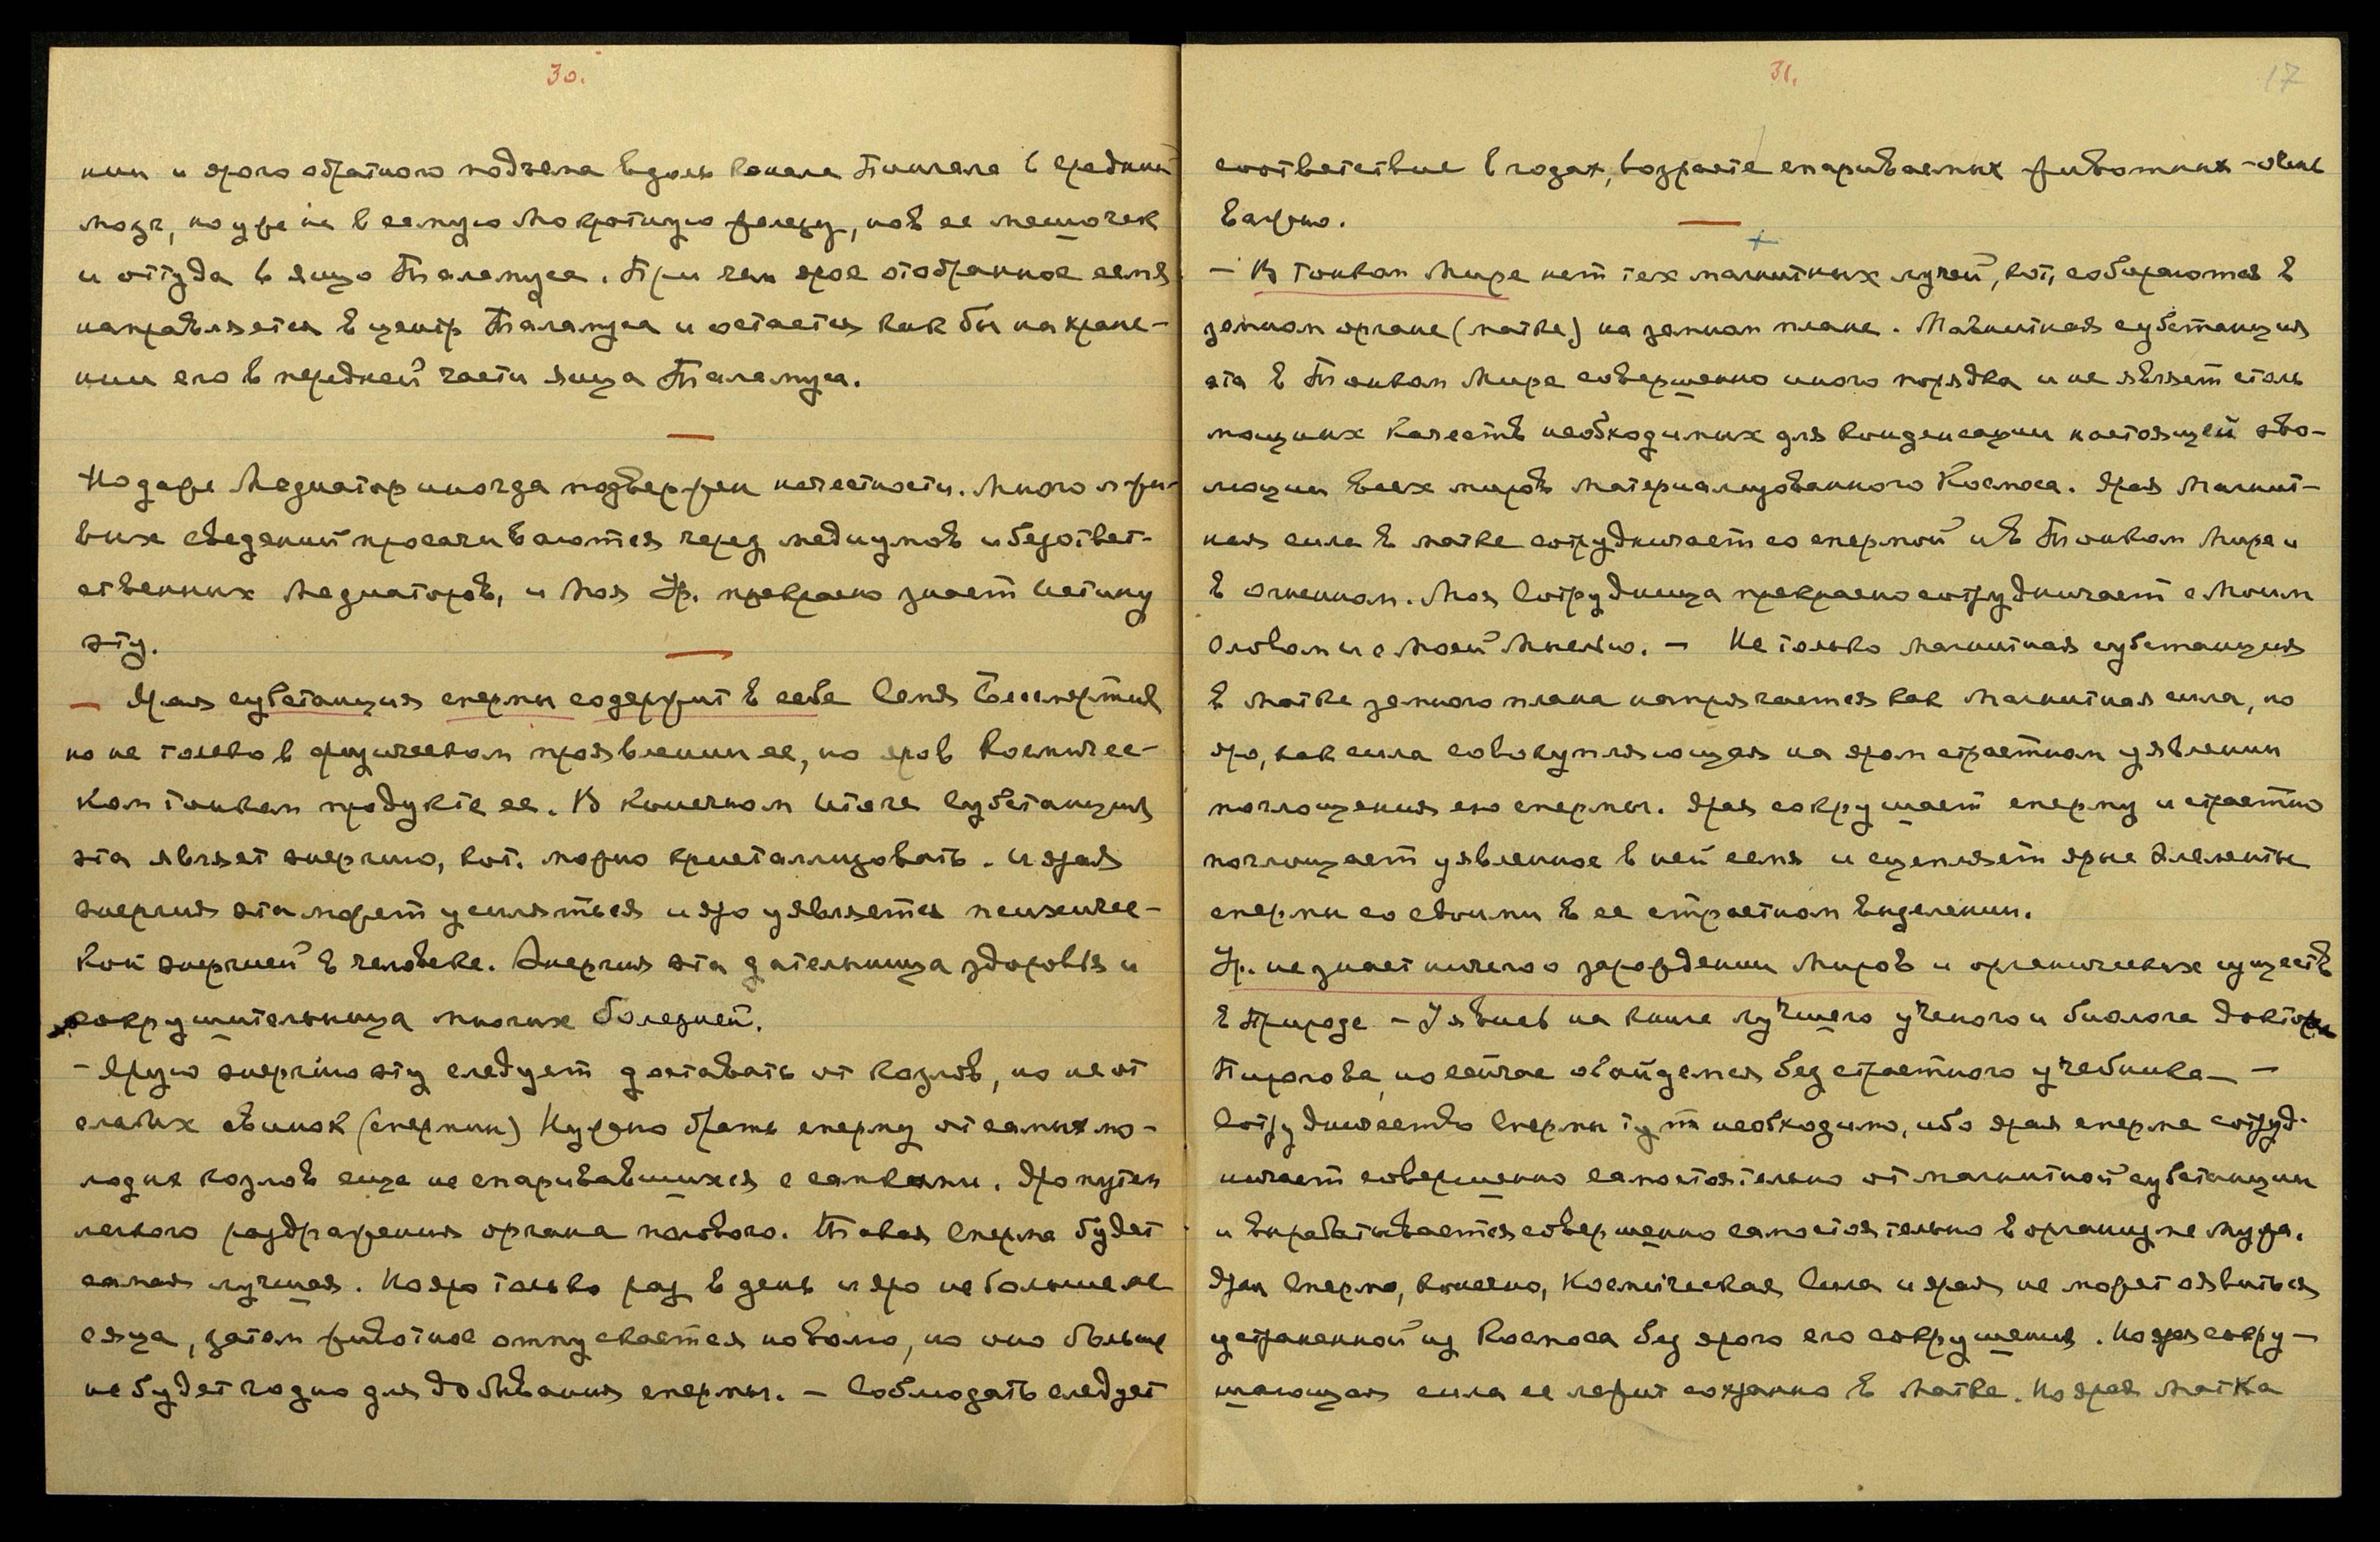 30.
нии и ярого обратного подъема вдоль канала Пинеала в средний
мозг, но уже не в самую Мокротную железу, но в ее мешочек
и оттуда в яицо Таламуса. При чем ярое отобранное семя
направляется в центр Таламуса и остается как бы на хране-
нии его в передней части яица Таламуса.
—
Но даже Медиатор иногда подвержен нечестности. Много лжи-
вых сведений просачиваются через медиумов и безответ-
ственных Медиаторов, и Моя Ур. прекрасно знает Истину
эту.
— Ярая субстанция спермы содержит в себе Семя Бессмертия
но не только в физическом проявлении ее, но яро в Космичес-
ком тонком продукте ее. В конечном Итоге Субстанция
эта являет энергию, кот. можно кристаллизовать. И ярая
энергия эта может усиляться и яро уявляется психичес-
кой энергией в человеке. Энергия эта дательница здоровья и
сокрушительница многих болезней.
- Ярую энергию эту следует доставать от козлов, но не от
слабых свинок (спермин) Нужно брать сперму от самых мо-
лодых козлов еще не спаривавшихся с самками. Яро путем
легкого раздражения органа полового. Такая Сперма будет
самая лучшая. Но яро только раз в день и яро не больше ме
сяца, затем животное отпускается на волю, но оно больше
не будет годно для добывания спермы. — Соблюдать следует
31.
17
соответствие в годах, возрасте спариваемых животных - очень
важно.
—
- В Тонком Мире нет тех магнитных лучей, кот. собираются в
земном органе (матке) на земном плане. Магнитная субстанция
эта в Тонком Мире совершенно иного порядка и не являет столь
мощных качеств необходимых для конденсации настоящей эво-
люции всех миров материализованного Космоса. Ярая Магнит-
ная сила в матке сотрудничает со спермой и в Тонком Мире и
в огненном. Моя Сотрудница прекрасно сотрудничает с Моим
Словом и с Моей Мыслью. — Не только магнитная субстанция
в Матке земного плана напрягается как Магнитная сила, но
яро, как сила совокупляющая на яром страстном уявлении
поглощения ею спермы. Ярая сокрушает сперму и страстно
поглощает уявленное в ней семя и сцепляет ярые Элементы
спермы со своими в ее страстном выделении.
Ур. не знает ничего о зарождении Миров и органических существ
в Природе — Уявись на книге лучшего ученого и биолога Доктора
Пирогова, но сейчас обойдемся без страстного учебника — —
Сотрудничество Спермы тут необходимо, ибо ярая сперма сотруд-
ничает совершенно самостоятельно от магнитной субстанции
и вырабатывается совершенно самостоятельно в организме Мужа.
Яры Сперма, конечно, Космическая Сила и ярая не может явиться
устраненной из Космоса без ярого его сокрушения. Но ярая сокру-
шающая сила ее лежит сохранно в Матке. Но ярая Матка